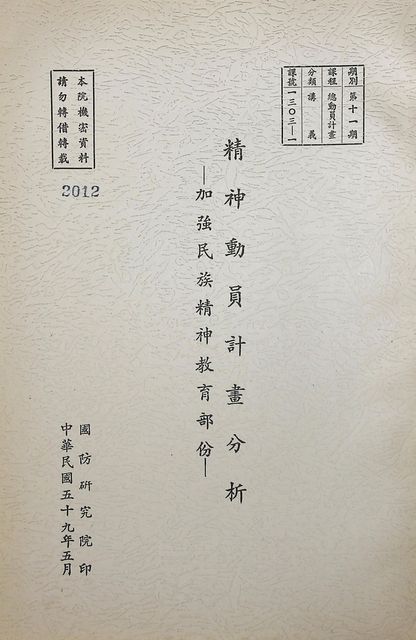 期別 第十一期
課程 總動員計畫
分類 講義
課號 一三〇三—一
精神動員計畫分析
—加強民族精神教育部份—
本院機密資料
請勿轉借轉載
2012
國防研究院印
中華民國五十九年五月